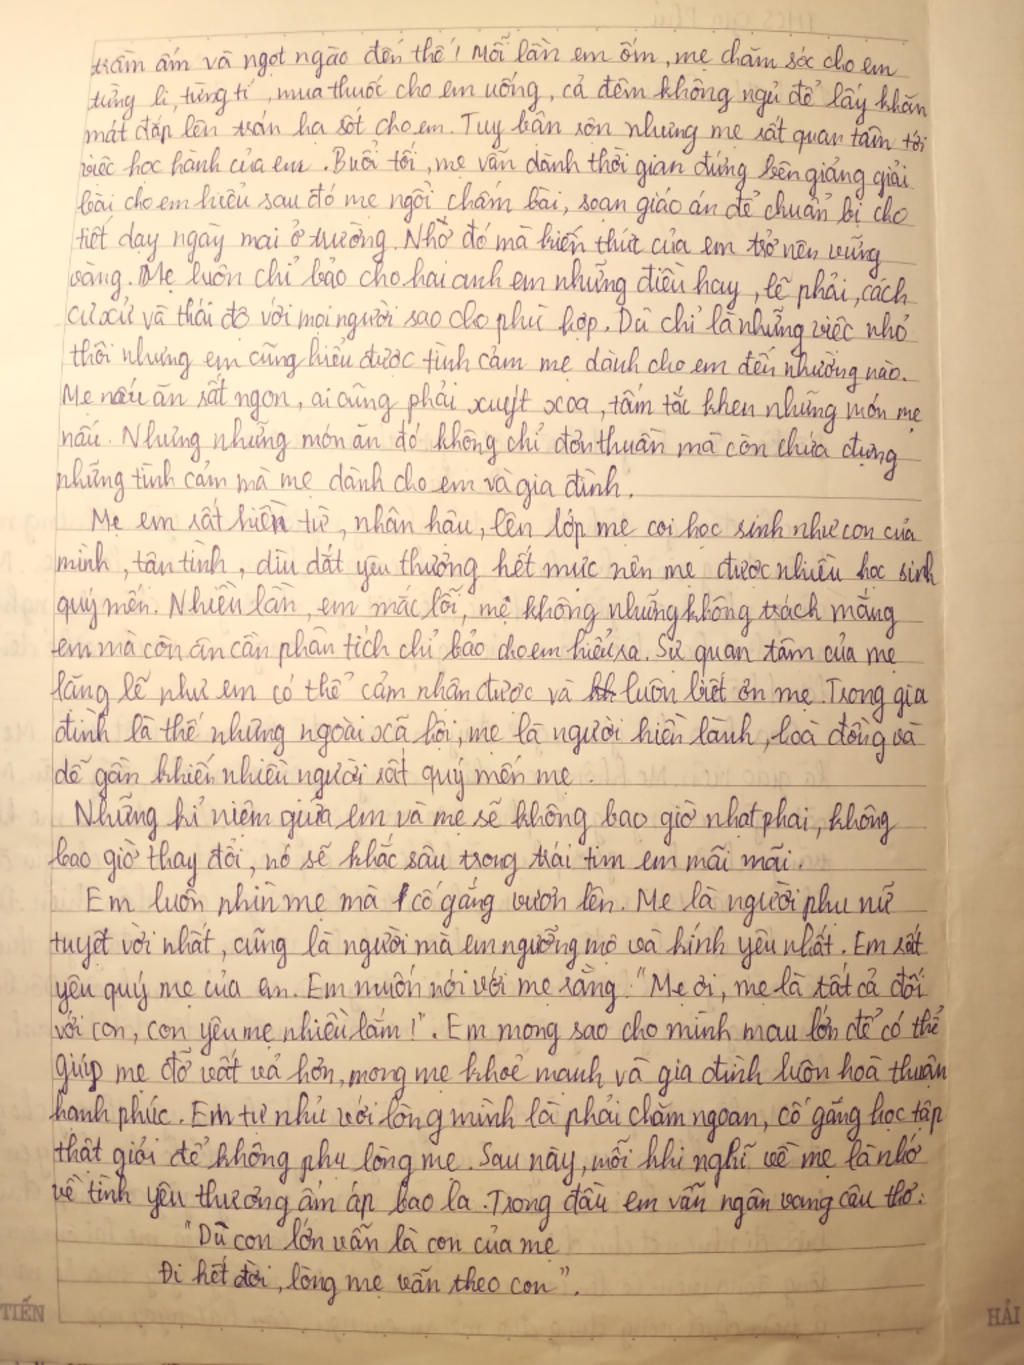 trầm ấm và ngọt ngào đến thế! Mỗi lần em ốm, mẹ chăm sóc cho em
từng li, từng tí, mua thuốc cho em uống, cả đêm không ngủ để lấy khăn
mát đắp lên trán hạ sốt cho em. Tuy bận rộn nhưng mẹ rất quan tâm tới
việc học hành của em. Buổi tối, mẹ vẫn dành thời gian đứng bên giảng giải
bài cho em hiểu sau đó mẹ ngồi chấm bài, soạn giáo án để chuẩn bị cho
tiết dạy ngày mai ở trường. Nhờ đó mà kiến thức của em trở nên vững
vàng. Mẹ luôn chỉ bảo cho hai anh em những điều hay, lẽ phải, cách
cư xử và thái độ với mọi người sao cho phù hợp. Dù chỉ là những việc nhỏ
thôi nhưng em cũng hiểu được tình cảm mẹ dành cho em đến nhường nào.
Mẹ nấu ăn rất ngon, ai cũng phải xuýt xoa, tấm tắc khen những món mẹ
nấu. Nhưng những món ăn đó không chỉ đơn thuần mà còn chứa đựng
những tình cảm mà mẹ dành cho em và gia đình.
Mẹ em rất hiền từ, nhân hậu, lên lớp mẹ coi học sinh như con của
mình, tận tình, dìu dắt yêu thương hết mực nên mẹ được nhiều học sinh
quý mến. Nhiều lần, em mắc lỗi, mẹ không những không trách mắng
em mà còn ân cần phân tích chỉ bảo cho em hiểu ra. Sự quan tâm của mẹ
lặng lẽ như em có thể cảm nhận được và luôn biết ơn mẹ. Trong gia
đình là thế nhưng ngoài xã hội, mẹ là người hiền lành, hoà đồng và
dễ gần khiến nhiều người rất quý mến mẹ.
Những kỉ niệm giữa em và mẹ sẽ không bao giờ nhạt phai, không
bao giờ thay đổi, nó sẽ khắc sâu trong trái tim em mãi mãi.
Em luôn nhìn mẹ mà cố gắng vươn lên. Mẹ là người phụ nữ
tuyệt vời nhất, cũng là người mà em ngưỡng mộ và kính yêu nhất. Em rất
yêu quý mẹ của em. Em muốn nói với mẹ rằng: "Mẹ ơi, mẹ là tất cả đối
với con, con yêu mẹ nhiều lắm!". Em mong sao cho mình mau lớn để có thể
giúp mẹ đỡ vất vả hơn, mong mẹ khoẻ mạnh và gia đình luôn hoà thuận
hạnh phúc. Em tự nhủ với lòng mình là phải chăm ngoan, cố gắng học tập
thật giỏi để không phụ lòng mẹ. Sau này, mỗi khi nghĩ về mẹ là nhớ
về tình yêu thương ấm áp bao la. Trong đầu em vẫn ngân vang câu thơ:
"Dù con lớn vẫn là con của mẹ
Đi hết đời, lòng mẹ vẫn theo con".
TIẾN
HẢI